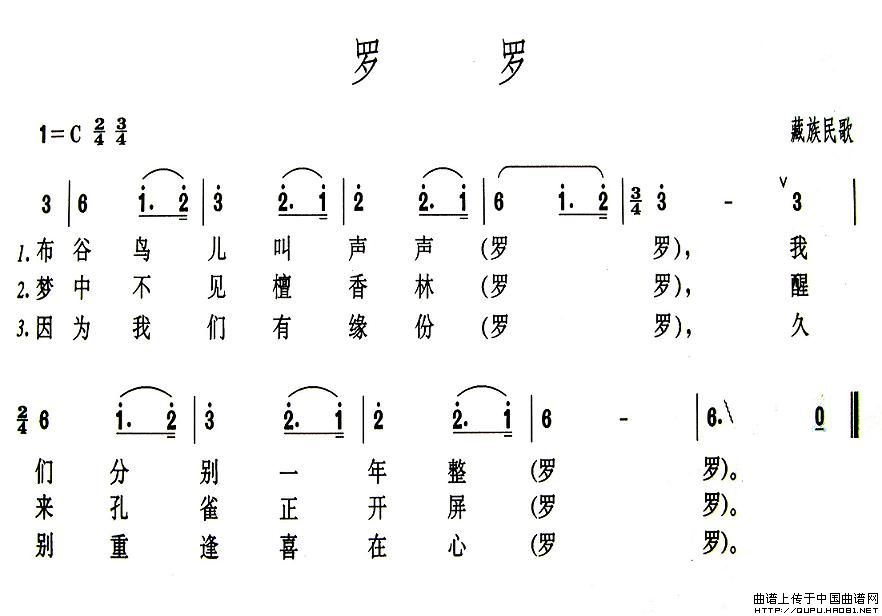 罗 罗
1=C 2/4 3/4 藏族民歌
3 | 6 1. 2 | 3 2. 1 | 2 2. 1 | 6 1. 2 | 3/4 3 - ∨ 3 |
1.布 谷 鸟 儿 叫 声 声 (罗 罗), 我
2.梦 中 不 见 檀 香 林 (罗 罗), 醒
3.因 为 我 们 有 缘 份 (罗 罗), 久
2/4 6 1. 2 | 3 2. 1 | 2 2. 1 | 6 - | 6. 0 ‖
们 分 别 一 年 整 (罗 罗)。
来 孔 雀 正 开 屏 (罗 罗)。
别 重 逢 喜 在 心 (罗 罗)。
曲谱上传于中国曲谱网
HTTP://QUPU.HAO81.NET